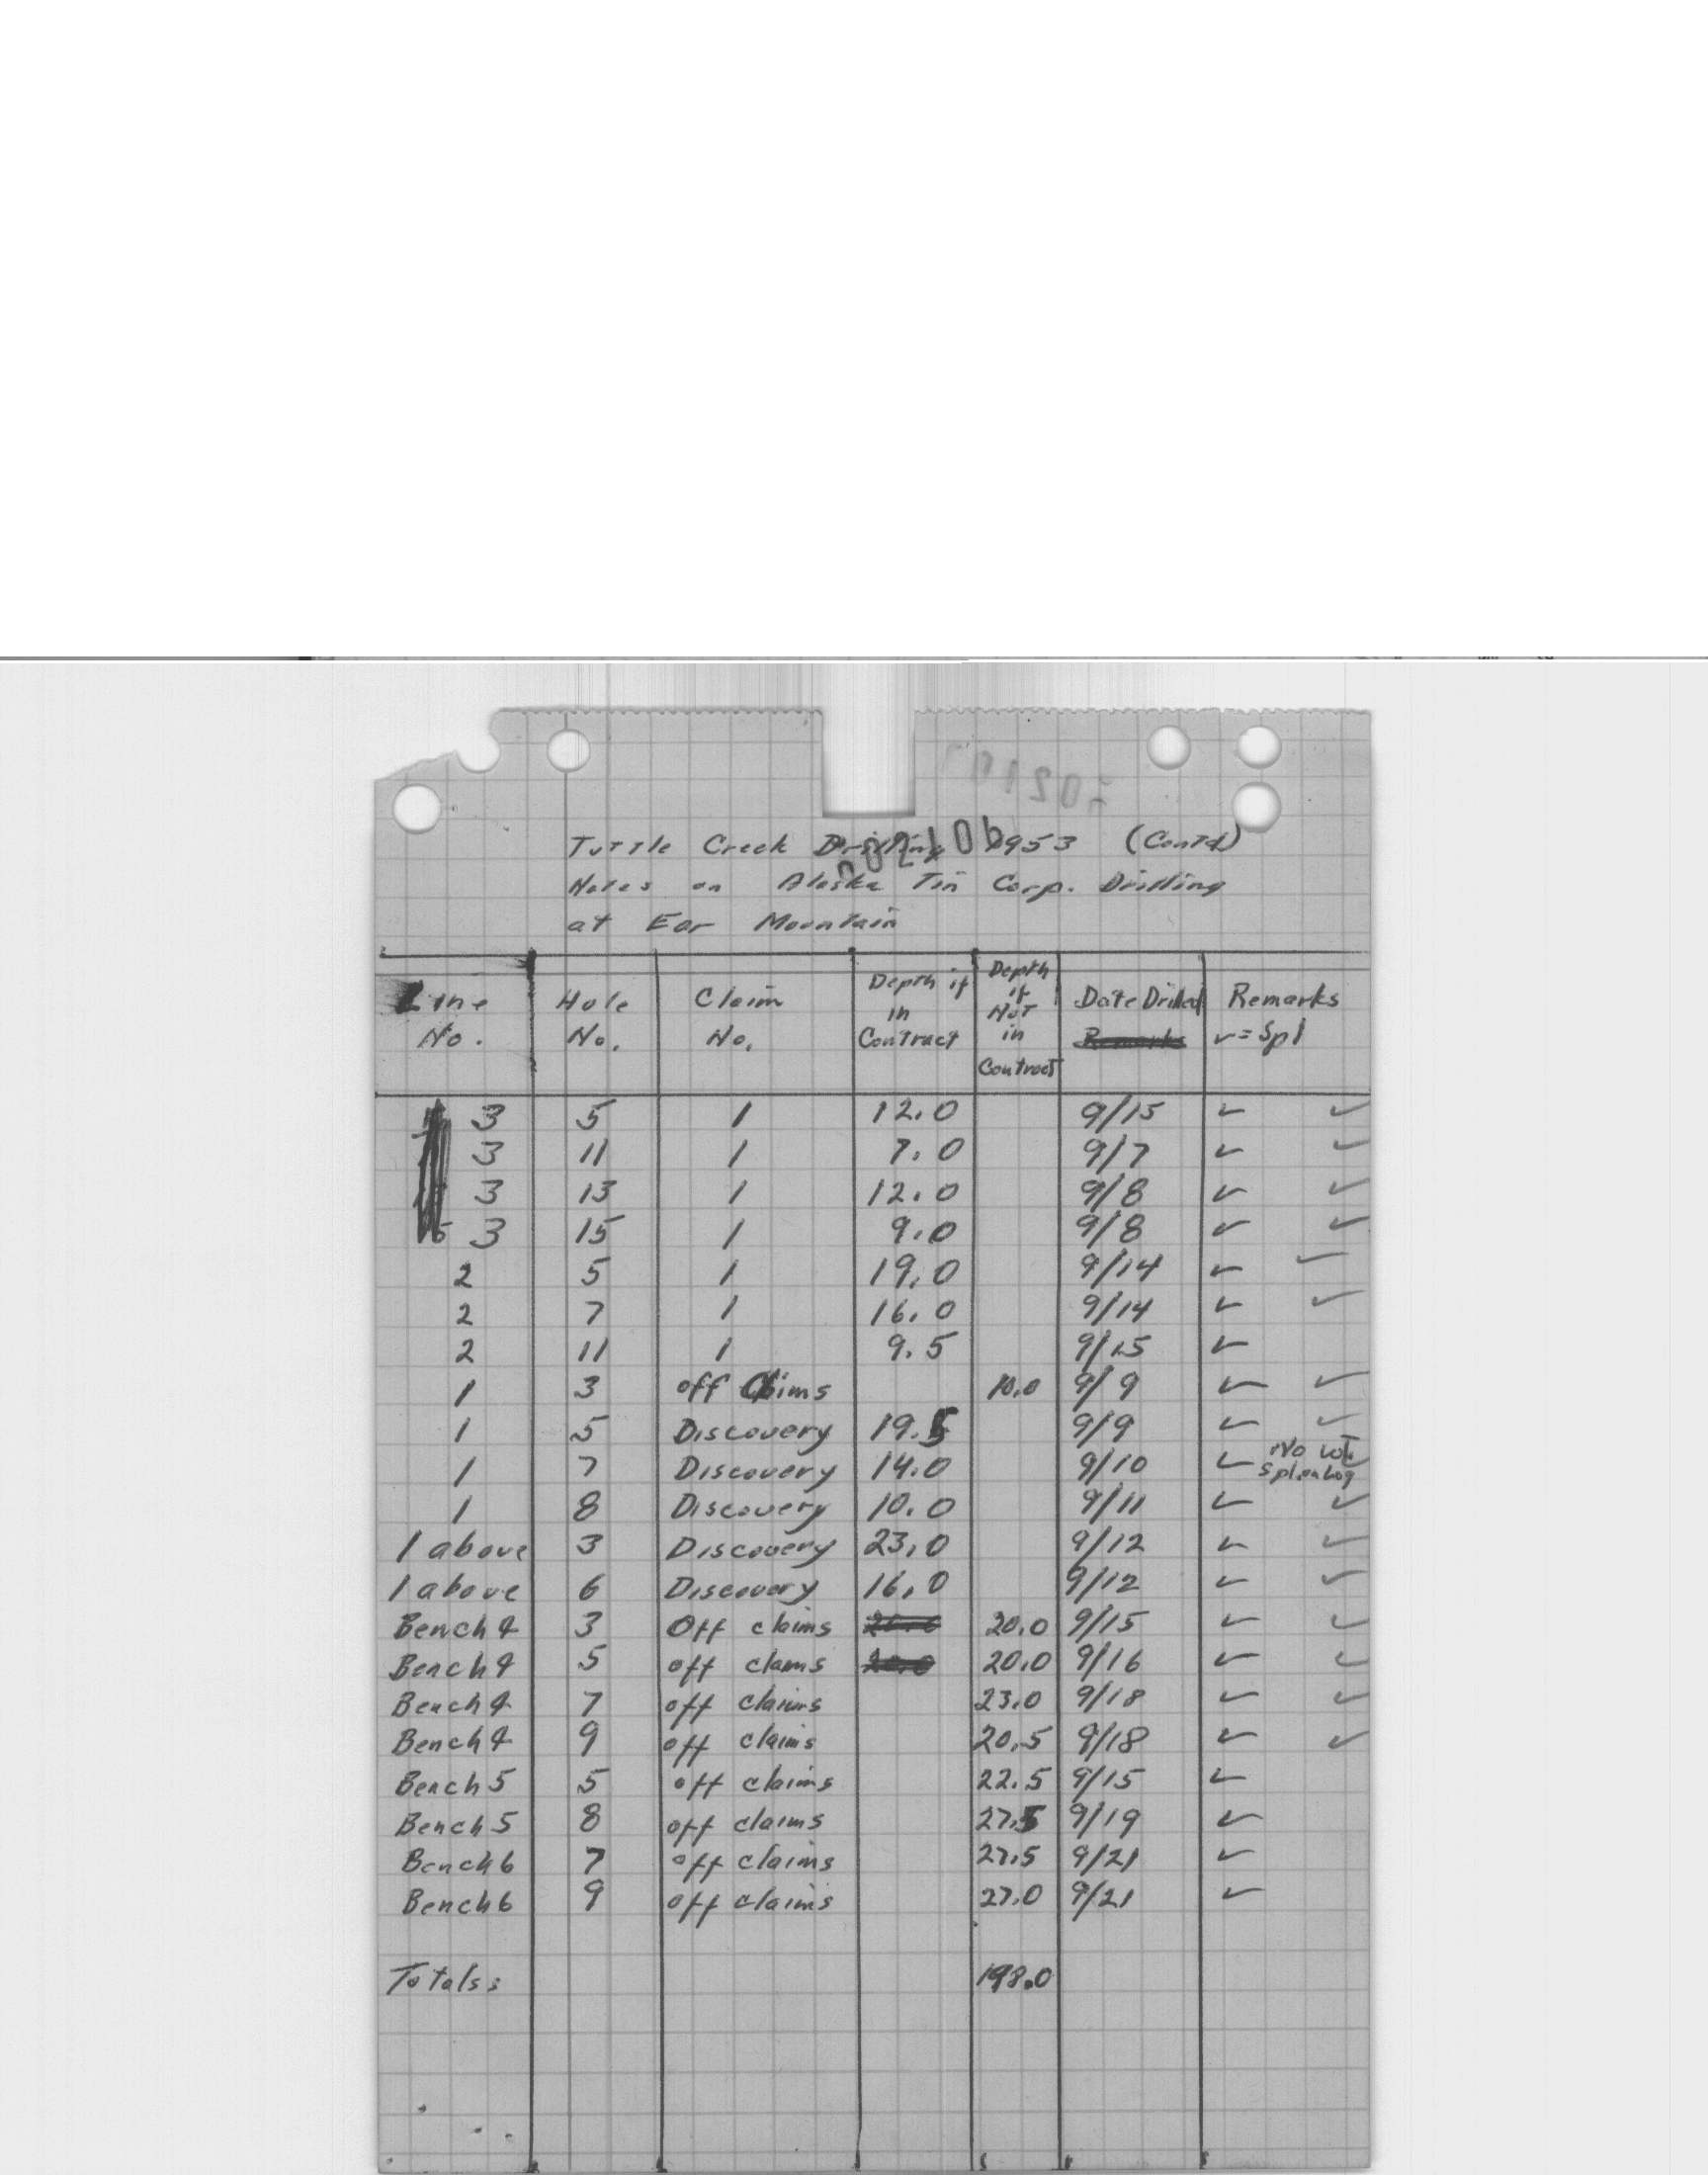 Tuttle Creek Drilling 1953 (Contd)
Notes on Alaska Tin Corp. Drilling
at Ear Mountain
Line No. Hole No. Claim No. Depth if in Contract Depth if Not in Contract Date Drilled Remarks ✓=Spl
3 5 1 12.0 9/15 ✓ ✓
3 11 1 7.0 9/7 ✓ ✓
3 13 1 12.0 9/8 ✓ ✓
3 15 1 9.0 9/8 ✓ ✓
2 5 1 19.0 9/14 ✓ ✓
2 7 1 16.0 9/14 ✓ ✓
2 11 1 9.5 9/15 ✓
1 3 off Claims 10.0 9/9 ✓ ✓
1 5 Discovery 19.5 9/9 ✓ ✓
1 7 Discovery 14.0 9/10 ✓ No
1 8 Discovery 10.0 9/11 ✓ ✓
1 above 3 Discovery 23.0 9/12 ✓ ✓
1 above 6 Discovery 16.0 9/12 ✓ ✓
Bench 4 3 Off claims 20.0 9/15 ✓ ✓
Bench 4 5 off clams 20.0 9/16 ✓ ✓
Bench 4 7 off claims 23.0 9/18 ✓ ✓
Bench 4 9 off claims 20.5 9/18 ✓ ✓
Bench 5 5 off claims 22.5 9/15 ✓
Bench 5 8 off claims 27.5 9/19 ✓
Bench 6 7 off claims 27.5 9/21 ✓
Bench 6 9 off claims 27.0 9/21 ✓
Totals: 198.0